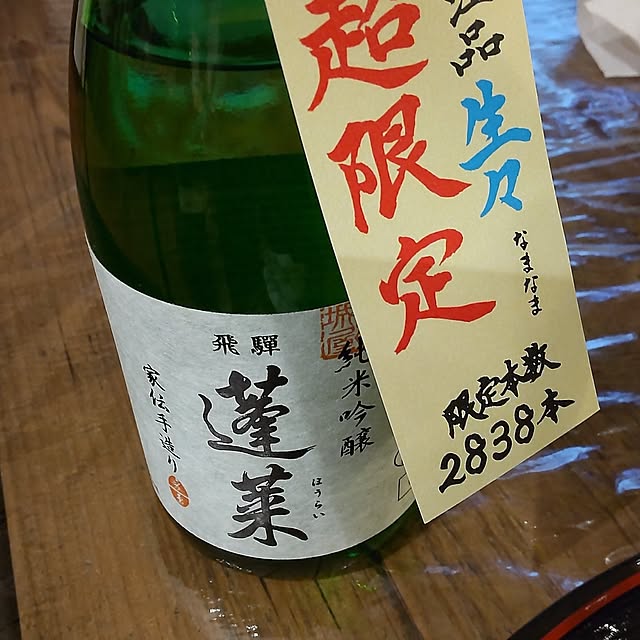 品
生々
なまなま
超限定
限定本数
2838本
純米吟醸
飛騨
蓬莱
ほうらい
家伝手造り